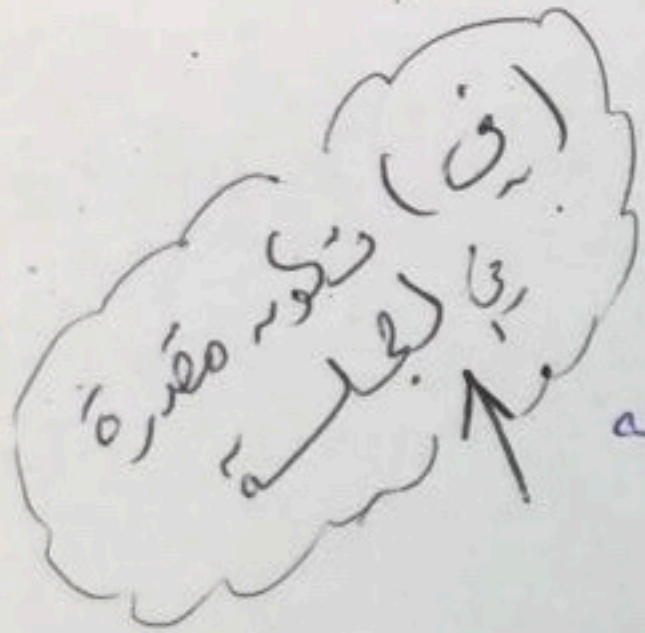 (في) تكون مقدرة
بالجملة